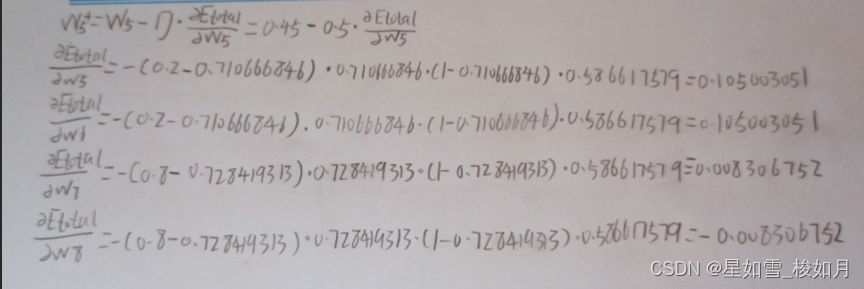 W5⁺=W5-η·∂Etotal/∂W5=0.45-0.5·∂Etotal/∂W5
∂Etotal/∂W5=-(0.2-0.710666846)·0.710666846·(1-0.710666846)·0.586617579=0.105003051
∂Etotal/∂W6=-(0.2-0.710666846)·0.710666846·(1-0.710666846)·0.586617579=0.105003051
∂Etotal/∂W7=-(0.8-0.728419313)·0.728419313·(1-0.728419313)·0.586617579=-0.008306752
∂Etotal/∂W8=-(0.8-0.728419313)·0.728419313·(1-0.728419313)·0.586617579=-0.008306752
CSDN @星如雪_梭如月